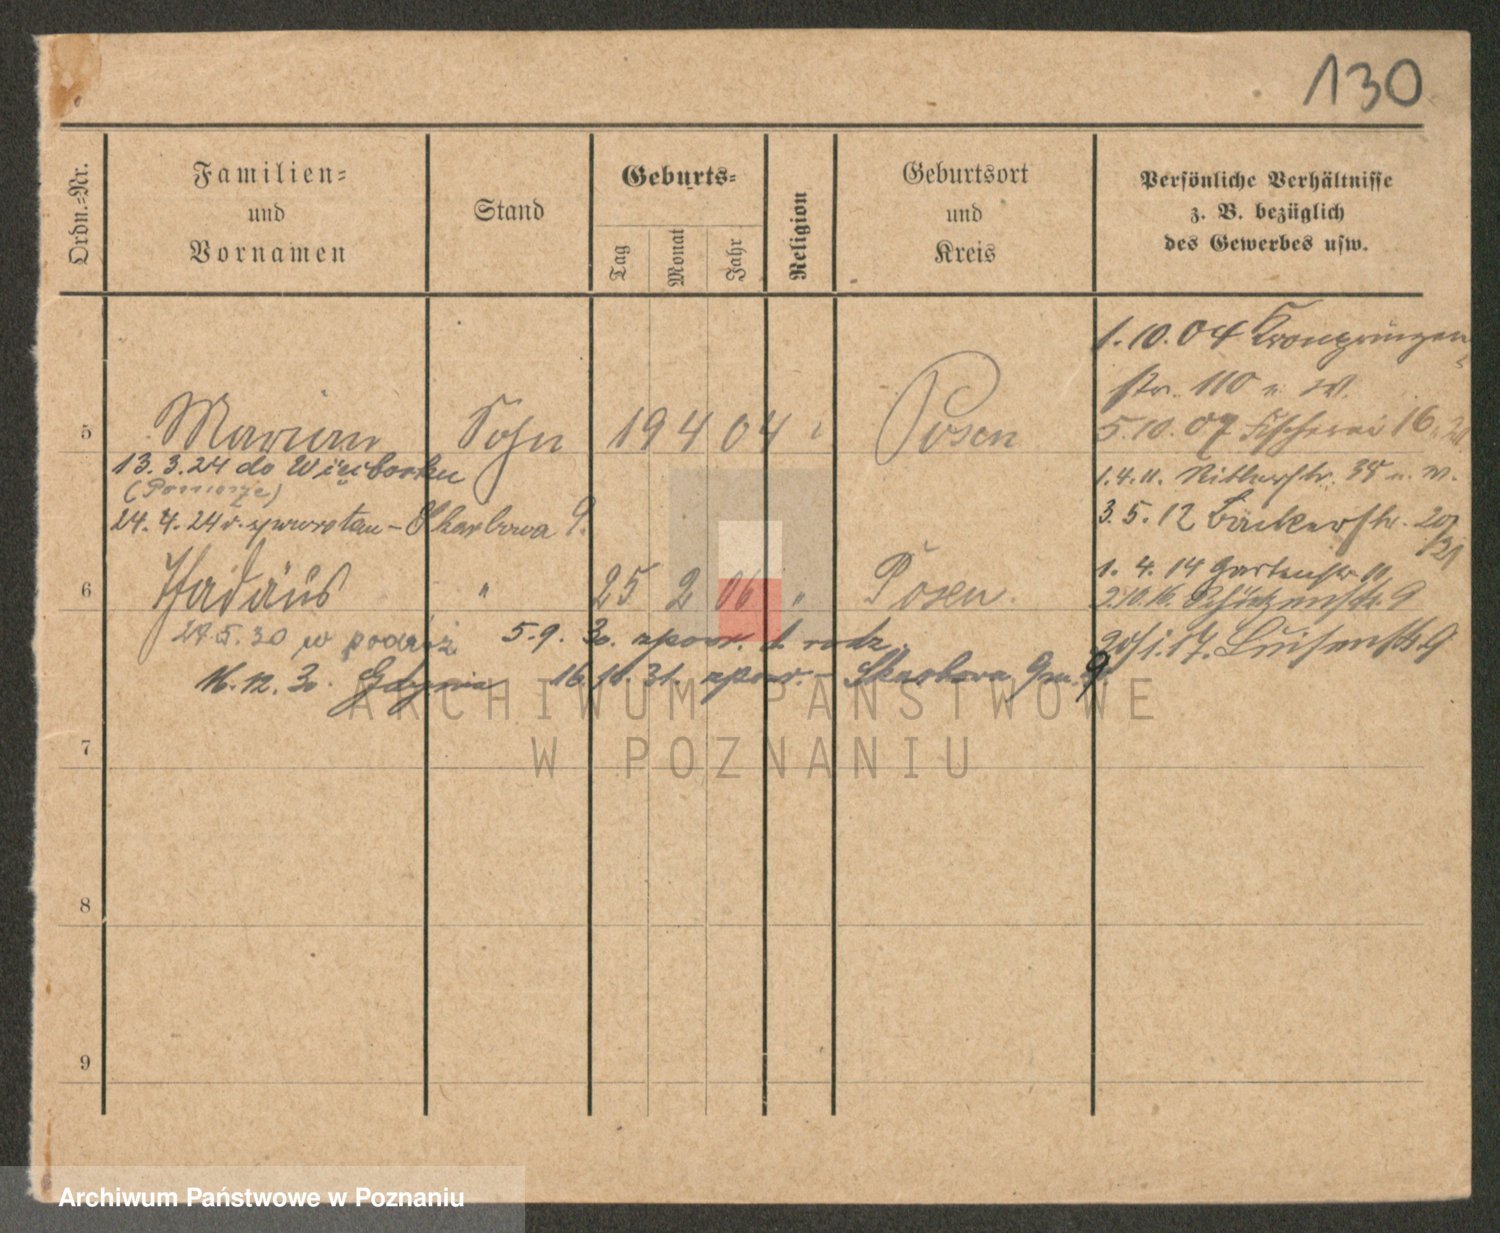 130
Ordn.-Nr.
Familien-
und
Vornamen
Stand
Geburts-
Tag
Monat
Jahr
Religion
Geburtsort
und
Kreis
Persönliche Verhältnisse
z. B. bezüglich
des Gewerbes usw.
1.10.04 Kronprinzen-
str. 110 n. W.
5 Marian Sohn 19 4 04 Posen
5.10.07 Fischerei 16
13.3.24 do Więcborku
(Pomorze)
1.4.11. Ritterstr. 38 n. W.
24.4.24 r. z powrotem - Skarbowa 9.
3.5.12 Bäckerstr. 20/21
1. 4. 14 Gartenstr. 11
6 Thadäus " 25 2 06 " Posen.
2.10.16. Schützenstr. 9
27.5.30 w podróż 5.9.30. zpowr. d. rodz.
20/1.17. Luisenstr. 9
16.12.30. Gdynia 16.10.31. zpowr. - Skarbowa 9
7
8
9
ARCHIWUM PAŃSTWOWE
W POZNANIU
Archiwum Państwowe w Poznaniu